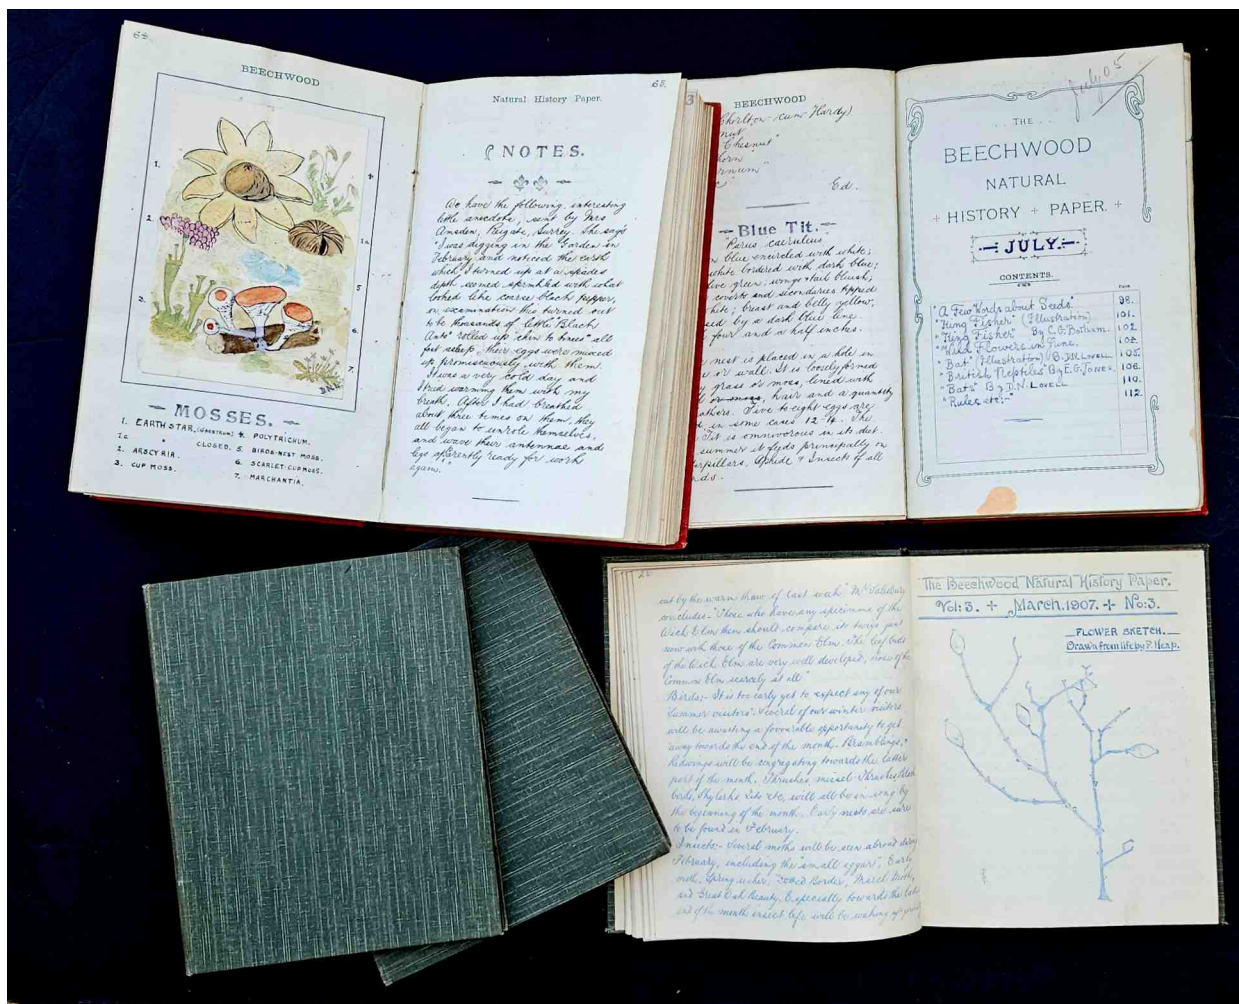 68
BEECHWOOD
1.
2.
3.
4
1a
5.
6.
7.
MOSSES.
1. EARTH STAR. (GEASTRUM) 4. POLYTRICHUM.
1a " CLOSED. 5. BIRDS-NEST MOSS.
2. ARSCYRIA. 6. SCARLET-CUP MOSS.
3. CUP MOSS. 7. MARCHANTIA.
Natural History Paper.
NOTES.
We have the following, interesting
little anecdote, sent by Mrs
Amsden, Reigate, Surrey. She says
"I was digging in the Garden in
February and noticed the earth
which I turned up at a spades
depth seemed sprinkled with what
looked like coarse black pepper,
on examination this turned out
to be thousands of little "Black
Ants" rolled up "chin to knees" all
fast asleep, their eggs were mixed
up promiscuously with them.
It was a very cold day and
I tried warming them with my
breath. After I had breathed
about three times on them, they
all began to unroll themselves,
and wave their antennae and
legs apparently ready for work
again."
3
BEECHWOOD
Chorlton-cum-Hardy)
nut
Chesnut"
horn
rnum "
Ed.
Blue Tit.
"Parus caeruleus"
n blue encircled with white;
white bordered with dark blue;
ive green; wings & tail bluish,
coverts and secondaries tipped
hite; breast and belly yellow,
sed by a dark blue line.
four and a half inches.
nest is placed in a hole in
or wall. It is loosely formed
y grass or moss, lined with
hair and a quantity
athers. Five to eight eggs are
in some cases 12. The
Tit is omnivorous in its diet.
summer it feeds principally on
erpillars, Aphide & Insects of all
nds.
July 05
THE
BEECHWOOD
NATURAL
HISTORY PAPER.
JULY.
CONTENTS.
PAGE
"A Few Words about Seeds" 98.
"King Fisher" (Illustration) 101.
"King Fisher" By C.G. 102
"Wild Flowers in June. 102.
"Bat" (Illustration) By D.N. LOVELL 105.
"British Reptiles" By E.G. JONES. 106.
"Bats" By D.N. LOVELL 110.
"Rules etc:- 112.
out by the warm thaw of last week" Mr Salisbury
concludes- "Those who have any specimens of the
Wich Elm then should compare its twigs just
now with those of the Common Elm. The leaf buds
of the Wich Elm are very well developed, those of the
Common Elm scarcely at all"
Birds:- It is too early yet to expect any of our
"Summer visitors". Several of our winter visitors
will be awaiting a favourable opportunity to get
away towards the end of the month. Bramblings, &
Redwings will be congregating towards the latter
part of the month. Thrushes, missel Thrushes, Black
birds, Skylarks Tits etc, will all be in song by
the beginning of the month. Early nests are sure
to be found in February.
Insects:- Several moths will be seen abroad during
February, including the "small eggar", Early
moth, Spring usher, Dotted Border, March Moth,
and Great Oak Beauty. Especially towards the latter
end of the month insect life will be waking up
The Beechwood Natural History Paper.
Vol: 3. + March. 1907. + No: 3.
FLOWER SKETCH.
Drawn from life by P. Heap.